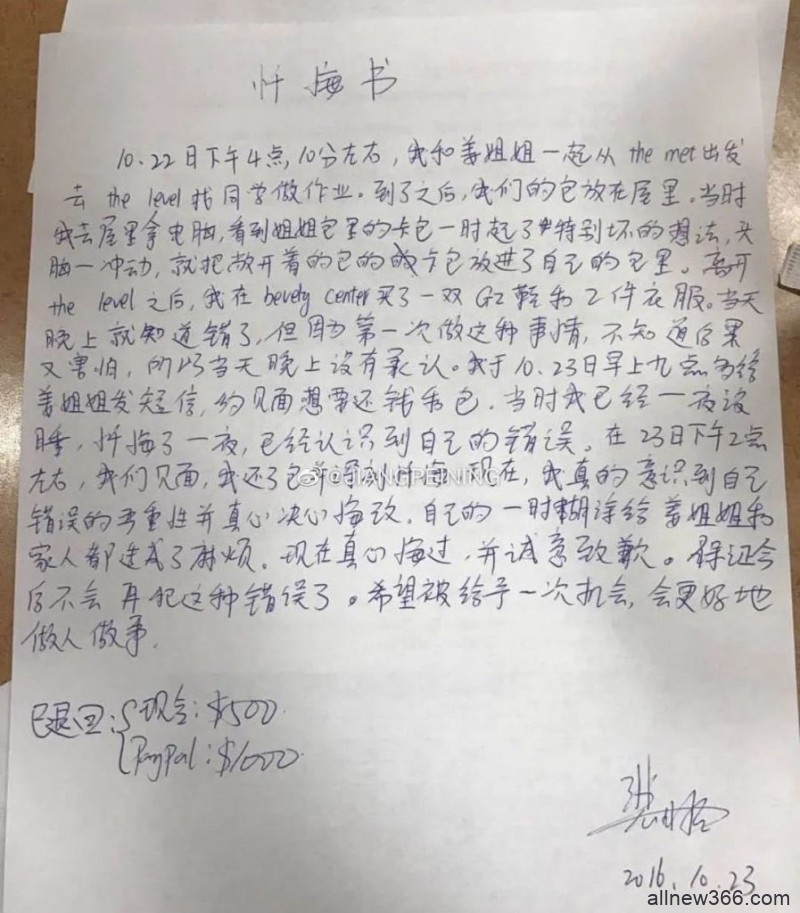 忏悔书
10.22日下午4点,10分左右,我和姜姐姐一起从 the met 出发
去 the level 找同学做作业.到了之后,我们的包放在屋里.当时
我去屋里拿电脑,看到姐姐包里的卡包一时起了特别坏的想法,头
脑一冲动,就把敞开着的包的卡包放进了自己的包里。离开
the level 之后,我在 bevely center 买了一双 GZ 鞋和 2件衣服。当天
晚上就知道错了,但因为第一次做这种事情,不知道后果
又害怕,所以当天晚上没有承认。我于10.23日早上九点多给
姜姐姐发短信,约见面想要还钱和包.当时我已经一夜没
睡,忏悔了一夜,已经认识到自己的错误。在23日下午2点
左右,我们见面,我还了包并 现在,我真的意识到自己
错误的严重性并真心决心悔改.自己的一时糊涂给姜姐姐和
家人都造成了麻烦.现在真心悔过,并诚意致歉。保证今
后不会再犯这种错误了。希望被给予一次机会,会更好地
做人做事.
已退回:现金:$500
PayPal:$1000
2016.10.23
@JIANGPEINING
allnew366.com